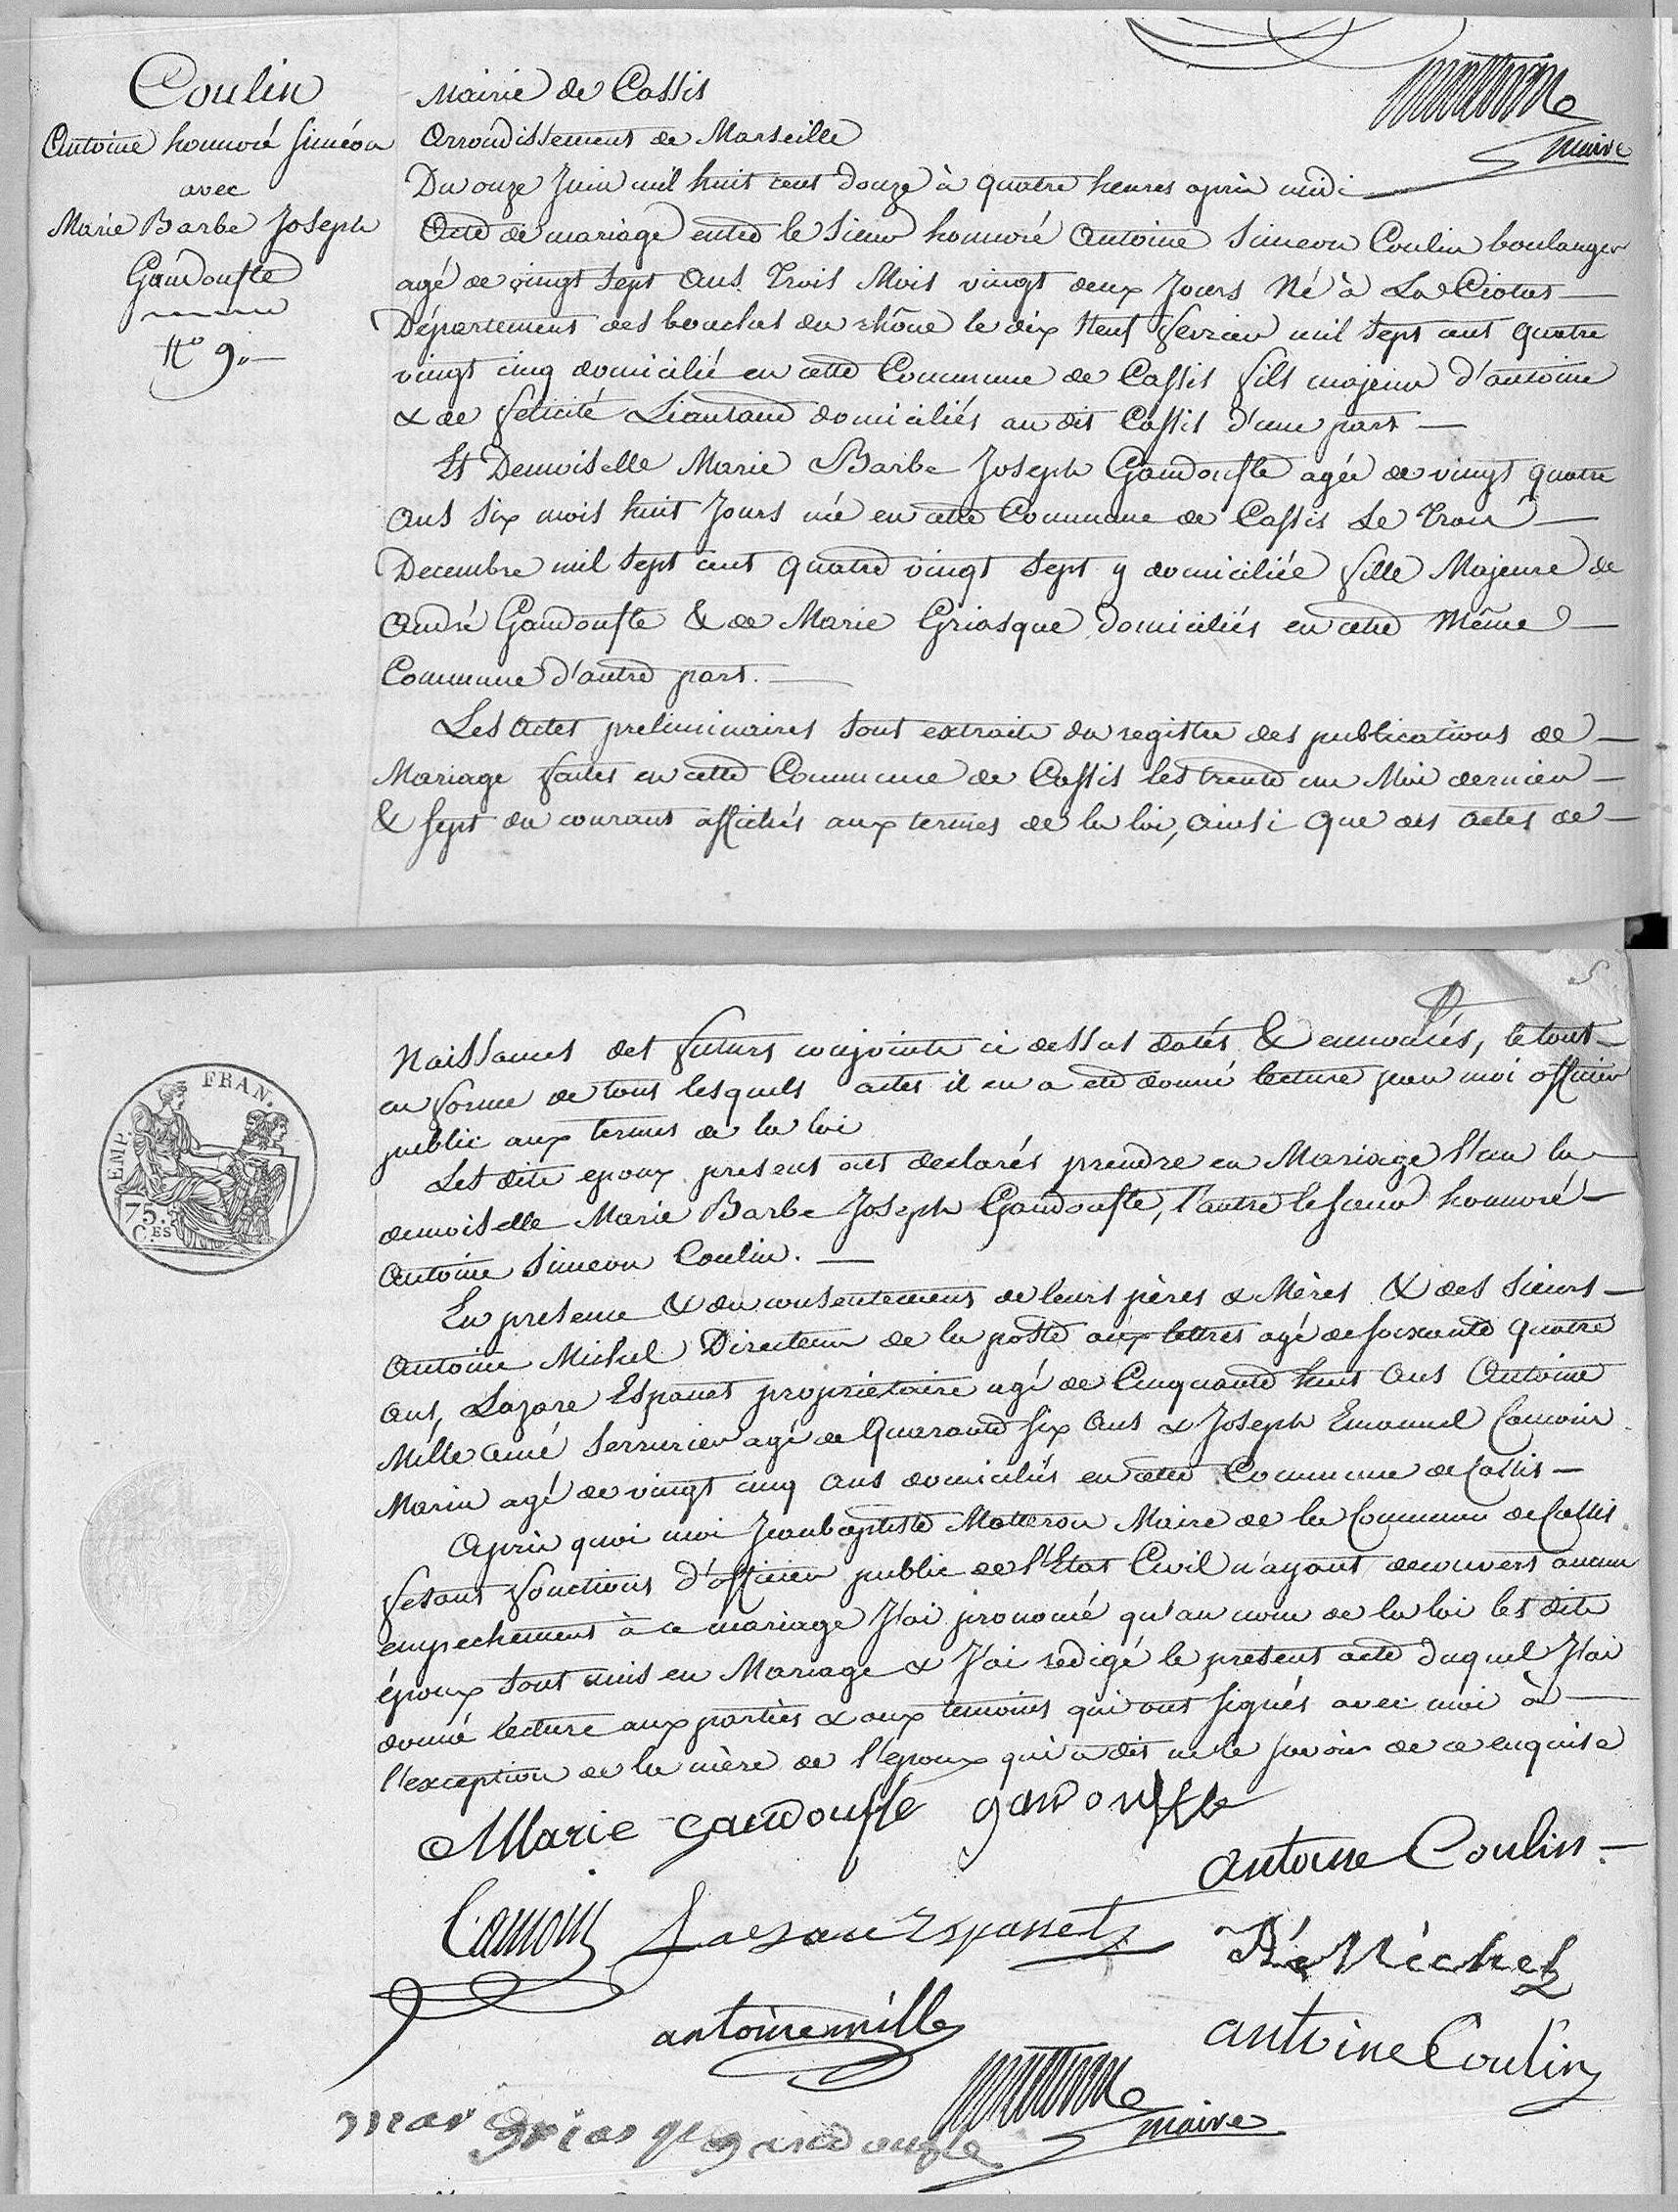 Coulin
Antoine honnoré Siméon
avec
Marie Barbe Joseph
Gandoufle
N.° 9.
maire
Mairie de Cassis
Arrondissement de Marseille
Du onze Juin mil huit cent douze à quatre heures après midi
Acte de mariage entre le Sieur honnoré Antoine Simeon Coulin boulanger
agé de vingt sept ans trois Mois vingt deux Jours Né à La Ciotat
Département des bouches du rhône le dix Neuf fevrier mil sept cent quatre
vingt cinq domicilié en cette Commune de Cassis fils majeur d'antoine
& de felicité Liautaud domiciliés au dit Cassis d'une part
Et Demoiselle Marie Barbe Joseph Gandoufle agée de vingt quatre
ans six mois huit Jours née en cette Commune de Cassis Le trois
Decembre mil sept cent quatre vingt sept y domiciliée fille Majeure de
André Gandoufle & de Marie Griasque domiciliés en cette Même
Commune d'autre part.
Les Actes preliminaires sont extraits du registre des publications de
Mariage faites en cette Commune de Cassis les trente un Mai dernier
& sept du courant affichés aux termes de la loi, ainsi que des actes de
5
EMP. FRAN.
75. C.ES
Naissances des futurs conjoints ci dessus datés & ennoncés, le tout
en forme de tous lesquels actes il en a été donné lecture par moi officier
public aux termes de la loi
Les dits epoux presens ont declarés prendre en Mariage l'un la
demoiselle Marie Barbe Joseph Gandoufle, l'autre le sieur honnoré
Antoine Simeon Coulin.
En presence & du consentement de leurs pères & Mères & des Sieurs
Antoine Michel Directeur de la poste aux lettres agé de soixante quatre
ans, Lazare Espanet propriétaire agé de Cinquante huit ans Antoine
Mille ainé Serrurier agé de Quarante six ans & Joseph Emanuel Camoin
Marin agé de vingt cinq ans domiciliés en cette Commune de Cassis
Après quoi moi Jean baptiste Matteron Maire de la Commune de Cassis
fesant fonctions d'officier public de l'Etat Civil n'ayant decouvert aucun
empechement à ce mariage J'ai prononcé qu'au nom de la loi les dits
époux sont unis en Mariage & J'ai rédigé le présent acte duquel J'ai
donné lecture aux parties & aux temoins qui ont signés avec moi à
l'exception de la mère de l'époux qui a dit ne le savoir de ce enquise
Marie gandoufle gandoufle
antoine Coulin
Camoin Lazare Espanet
Michel
antoine mille
antoine Coulin
maire
mari Griasque gandoufle